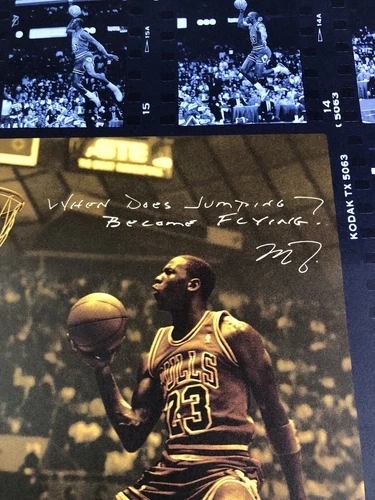 15
15A
14
14A
KODAK TX 5063
5063
When Does Jumping
Become Flying?
MJ.
BULLS
23